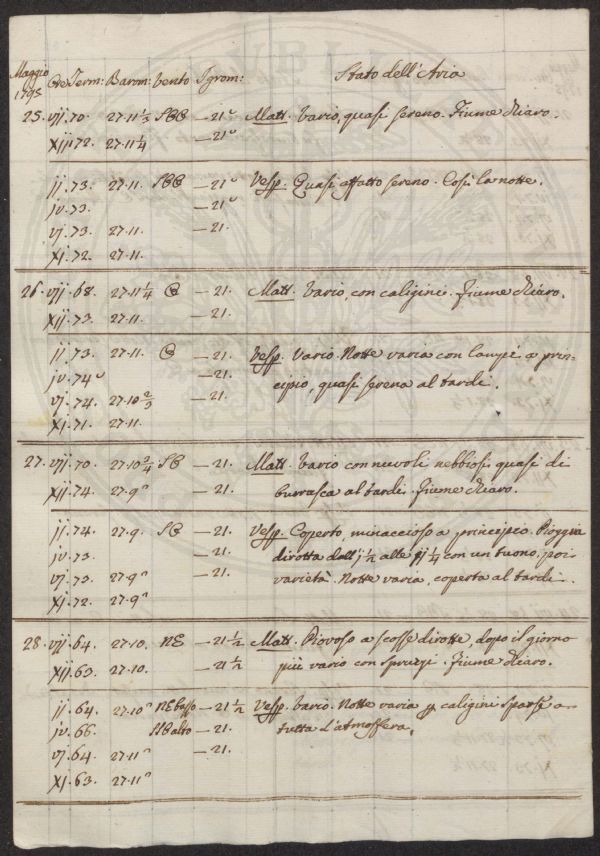 Maggio
1795 Ore Term: Barom: Vento Igrom: Stato dell'Aria
25. vij. 70. 27·11 1/3 — 21 Matt. Vario, quasi sereno. Fiume chiaro.
xij. 72. 27·11 1/4 — 21
ij. 73. 27·11. — 21 Vesp. Quasi affatto sereno. Così la notte.
iv. 73. — 21
vj. 73. 27·11. — 21.
xj. 72. 27·11.
26. vij. 68. 27·11 1/4 — 21. Matt. Vario, con caligini. Fiume chiaro.
xij. 73. 27·11. — 21.
ij. 73. 27·11. — 21. Vesp. Vario. Notte varia con lampi a prin=
iv. 74 — 21. cipio, quasi serena al tardi.
vj. 74. 27·10 2/3 — 21.
xj. 71. 27·11.
27. vij. 70. 27·10 3/4 — 21. Matt. Vario con nuvoli nebbiosi, quasi di
xij. 74. 27·9 — 21. burrasca al tardi. Fiume chiaro.
ij. 74. 27·9. — 21. Vesp. Coperto, minaccioso a principio. Pioggia
iv. 73. — 21. dirotta dall' 1/2 alle 1/4 con un tuono, poi
vj. 73. 27·9 — 21. varietà. Notte varia, coperta al tardi.
xj. 72. 27·9
28. vij. 64. 27·10. NE — 21 1/2 Matt. Piovoso a scosse dirotte, dopo il giorno
xij. 63. 27·10. — 21 1/2 più vario con spruzzi. Fiume chiaro.
ij. 64. 27·10 NE basso — 21 1/2 Vesp. Vario. Notte varia caligini sparse a
iv. 66. alto — 21. tutta l'atmosfera.
vj. 64. 27·11 — 21.
xj. 63. 27·11